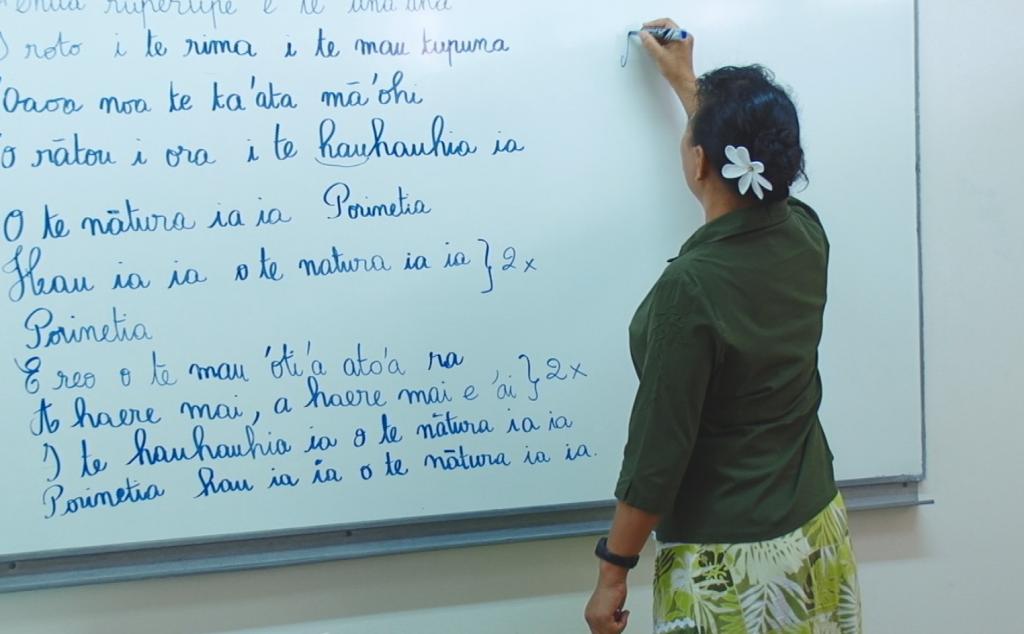 ruperupe e te
roto i te rima i te mau tupuna
'Oaoa noa te ta'ata mā'ohi
'O rātou i ora i te hauhauhia ia
O te nātura ia ia Porinetia
Hau ia ia o te natura ia ia } 2x
Porinetia
E reo o te mau 'ōti'a ato'a ra
A haere mai, a haere mai e 'ai } 2x
I te hauhauhia ia o te nātura ia ia
Porinetia hau ia ia o te nātura ia ia.